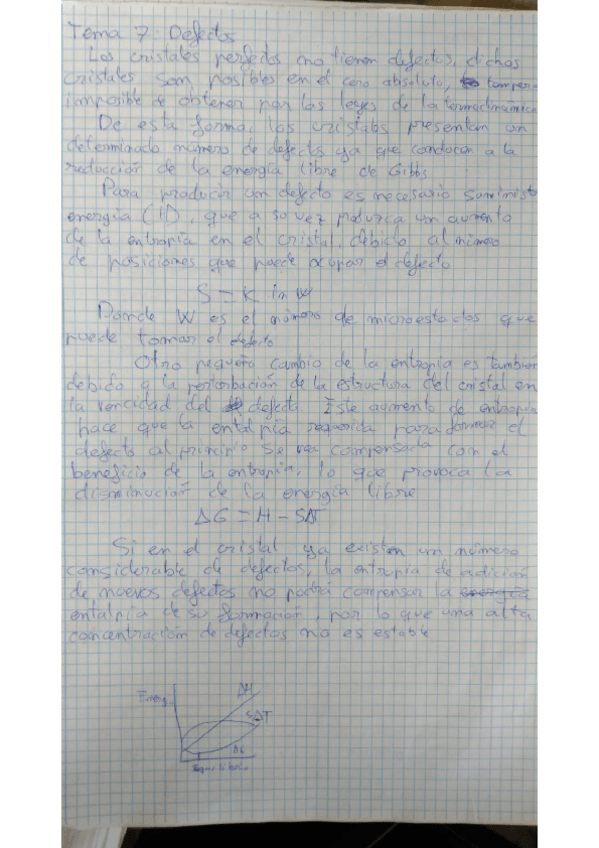 Tema 7: Defectos
Los cristales perfectos no tienen defectos, dichos
cristales son posibles en el cero absoluto,
imposible de obtener por las leyes de la termodinámica
De esta forma, los cristales presentan un
determinado número de defects ya que conducen a la
reducción de la energía libre de Gibbs
Para producir un defecto es necesario suminist
energía (H), que a su vez produzca un aumento
de la entropía en el cristal, debido al número
de posiciones que puede ocupar el defecto
S = K ln W
Donde W es el número de microestados que
puede tomar el defecto
Otro pequeño cambio de la entropía es también
debido a la perturbación de la estructura del cristal en
la vencidad del defecto. Este aumento de entropía
hace que la entalpía requerida para formar el
defecto al principio se vea compensada con el
beneficio de la entropía, lo que provoca la
disminución de la energía libre
ΔG = H - SΔT
Si en el cristal ya existen un número
considerable de defectos, la entropía de adición
de nuevos defectos no podrá compensar la
entalpía de su formación, por lo que una alta
concentración de defectos no es estable
ΔH
Energía
SΔT
ΔG
Equilibrio